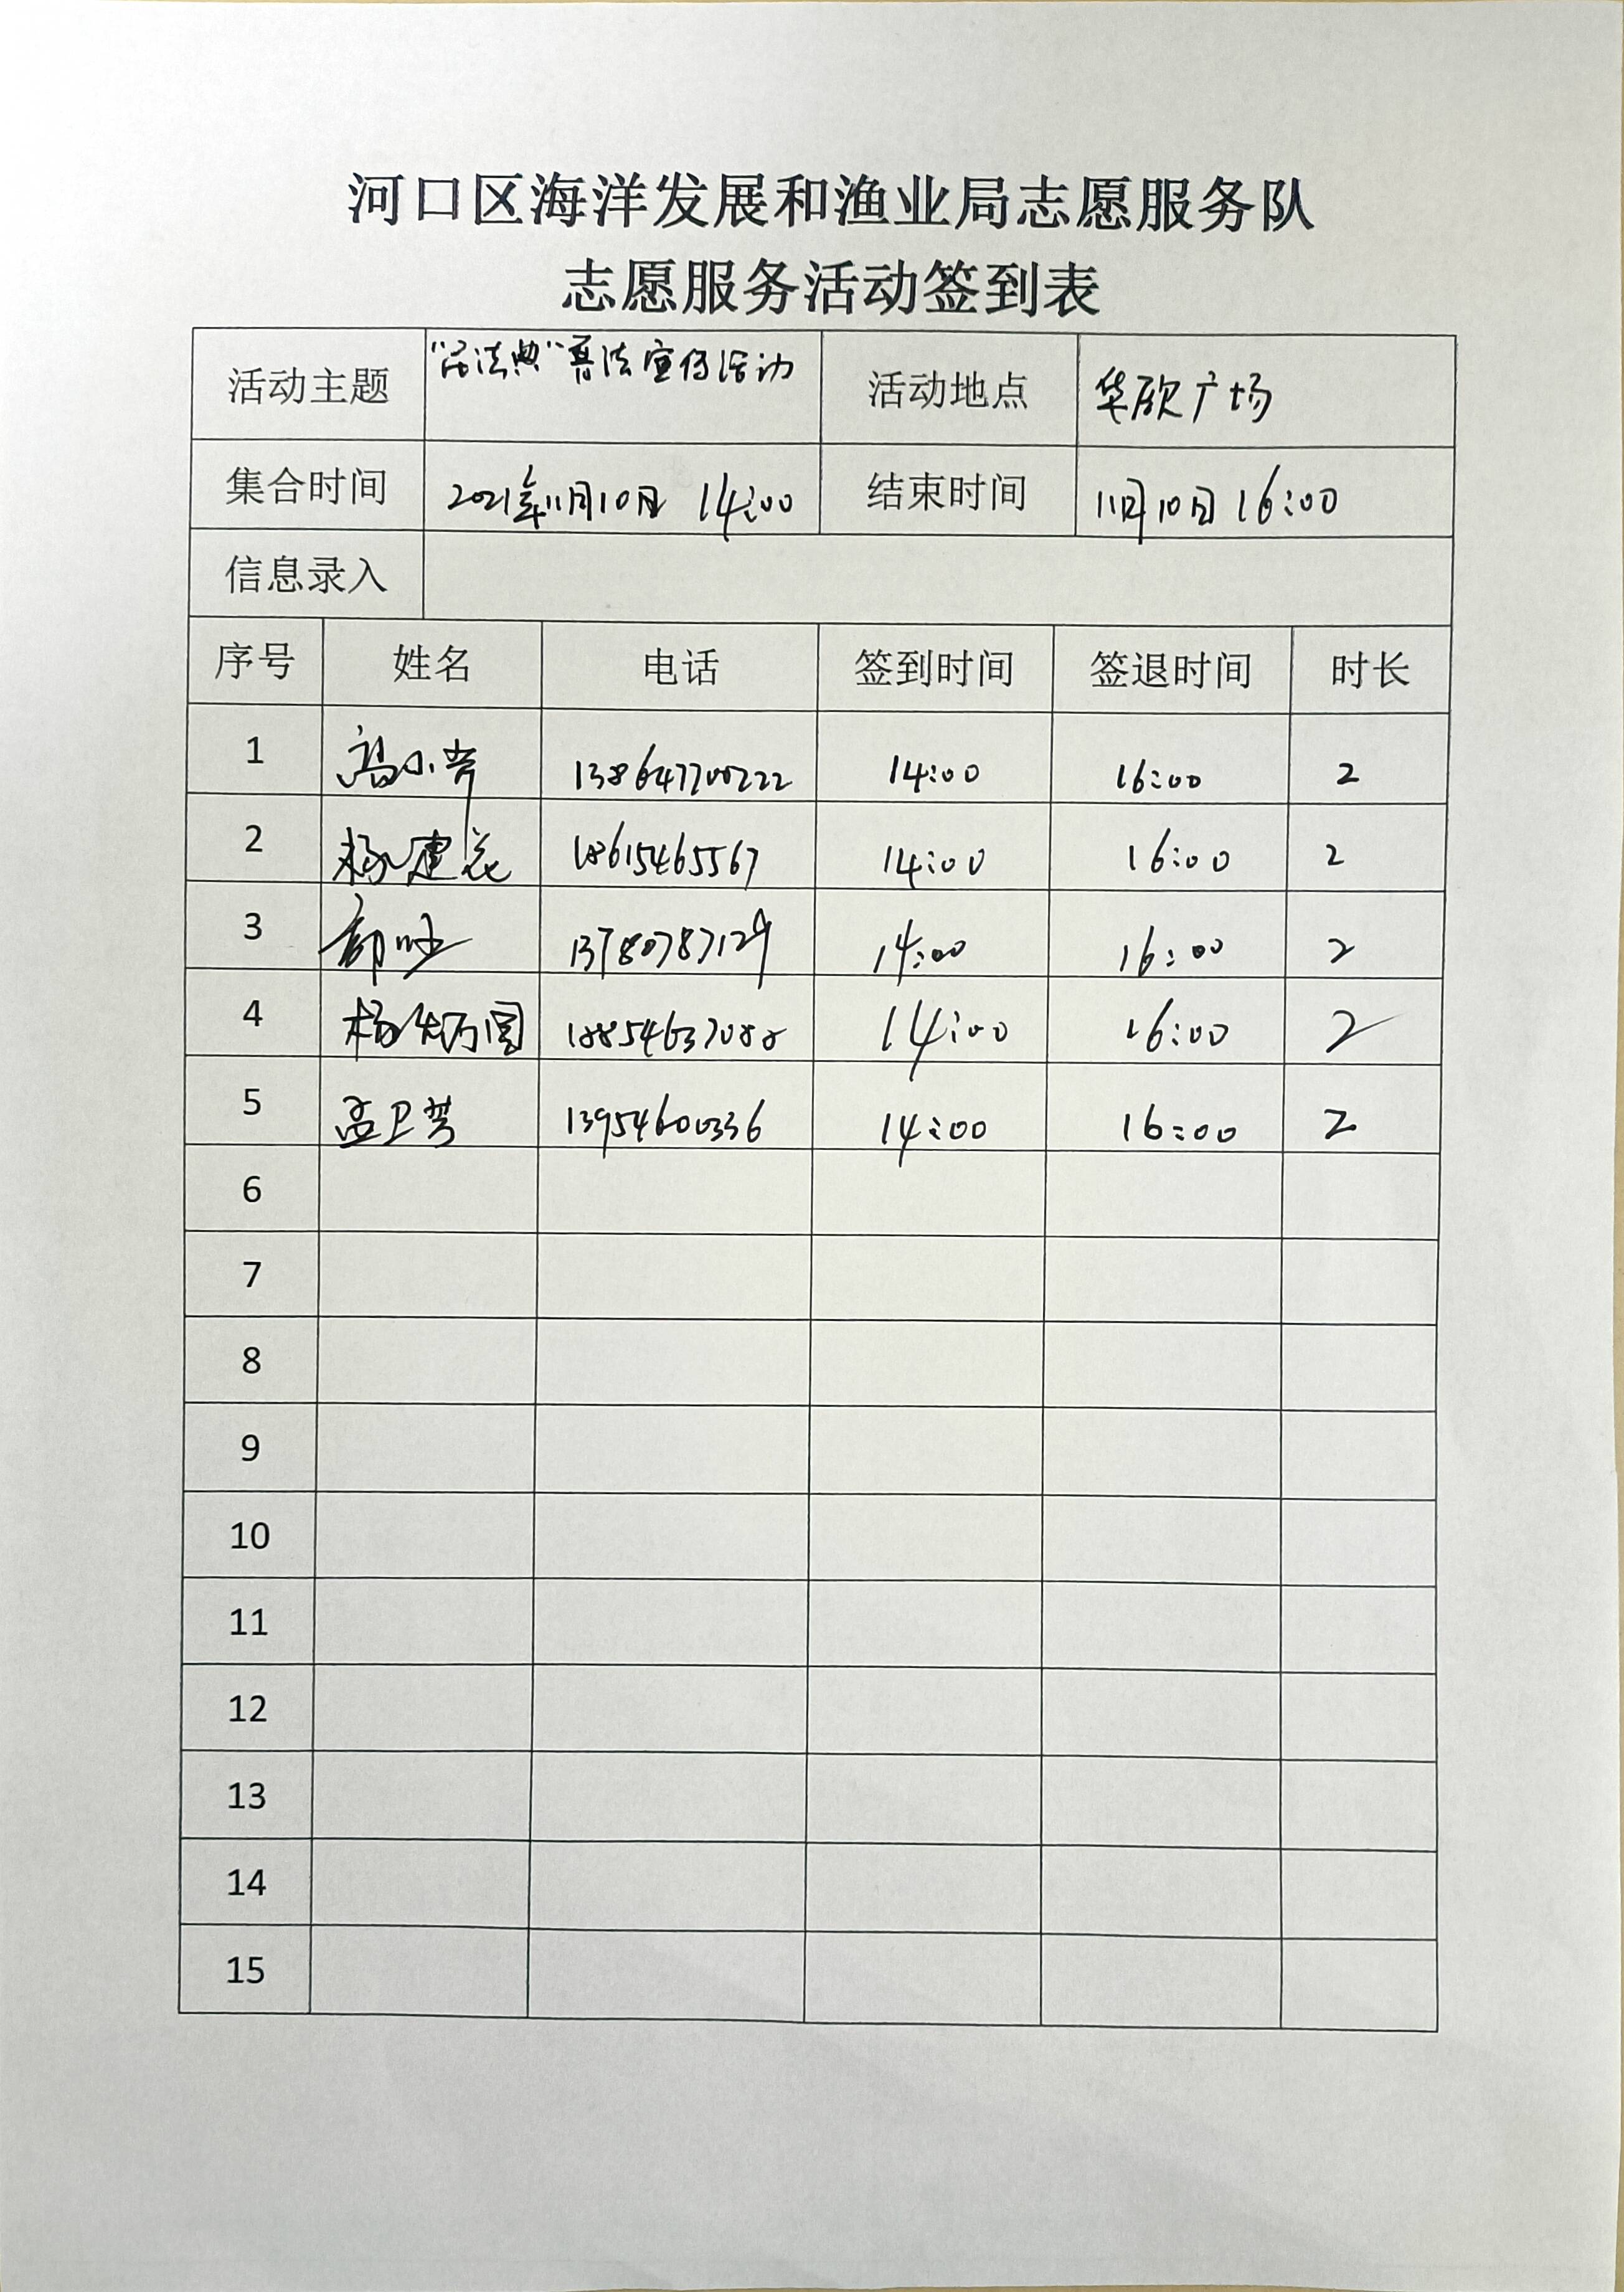 河口区海洋发展和渔业局志愿服务队
志愿服务活动签到表
活动主题 “民法典”普法宣传活动 活动地点 华欣广场
集合时间 2021年11月10日 14:00 结束时间 11月10日 16:00
信息录入
序号 姓名 电话 签到时间 签退时间 时长
1 14:00 16:00 2
2 杨建花 18615465567 14:00 16:00 2
3 13780787129 14:00 16:00 2
4 14:00 16:00 2
5 孟卫芳 13954600336 14:00 16:00 2
6
7
8
9
10
11
12
13
14
15